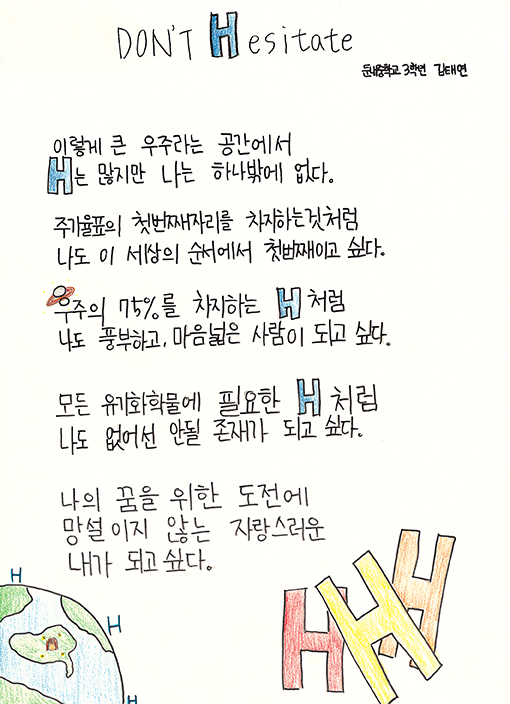 DON'T Hesitate
둔내중학교 3학년 김태연
이렇게 큰 우주라는 공간에서
H는 많지만 나는 하나밖에 없다.
주기율표의 첫번째자리를 차지하는것처럼
나도 이 세상의 순서에서 첫번째이고 싶다.
우주의 75%를 차지하는 H처럼
나도 풍부하고, 마음넓은 사람이 되고 싶다.
모든 유기화학물에 필요한 H처럼
나도 없어선 안될 존재가 되고 싶다.
나의 꿈을 위한 도전에
망설이지 않는 자랑스러운
내가 되고싶다.
H
H
H
H H H